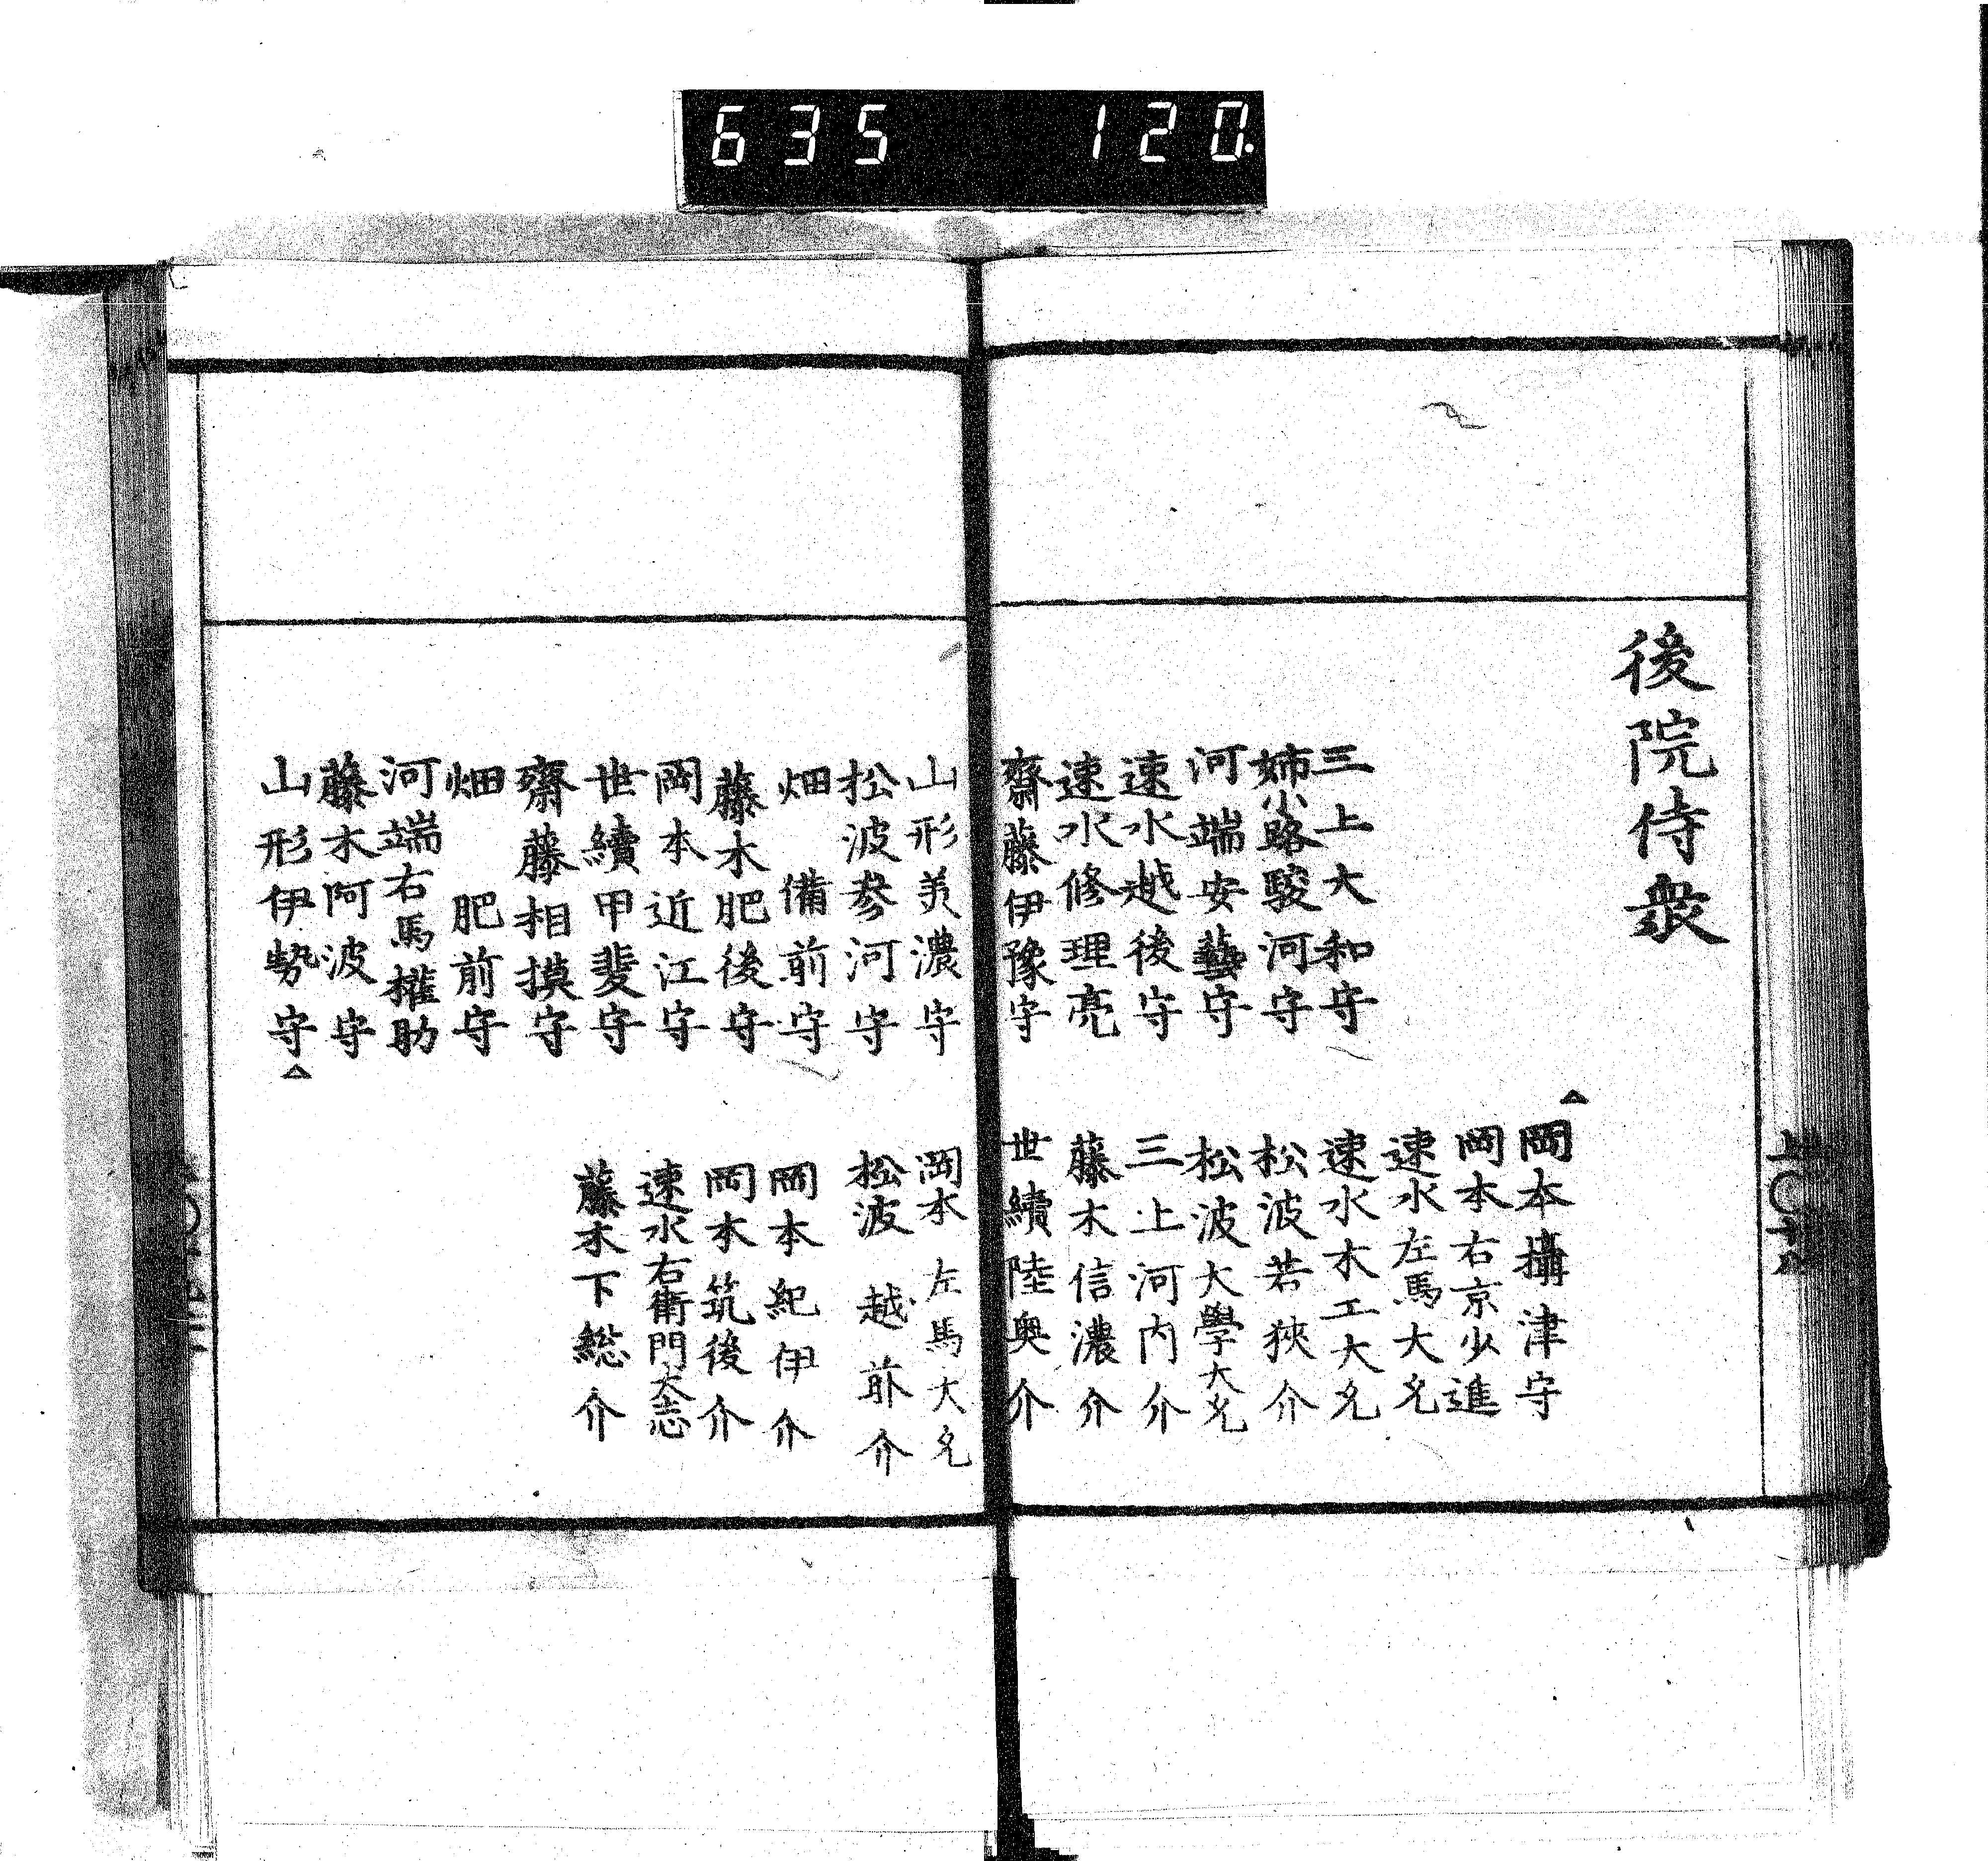 635 120.
後院侍衆
三上大和守
姉小路駿河守
河端安藝守
速水越後守
速水修理亮
齋藤伊豫守
山形美濃守
松波参河守
畑備前守
藤木肥後守
岡本近江守
世續甲斐守
齋藤相摸守
畑肥前守
河端右馬權助
藤木阿波守
山形伊勢守△
△
岡本攝津守
岡本右京少進
速水左馬大允
速水木工大允
松波若狹介
松波大學大允
三上河内介
藤木信濃介
世續陸奥介
岡本左馬大允
松波越前介
岡本紀伊介
岡本筑後介
速水右衛門大志
藤木下総介